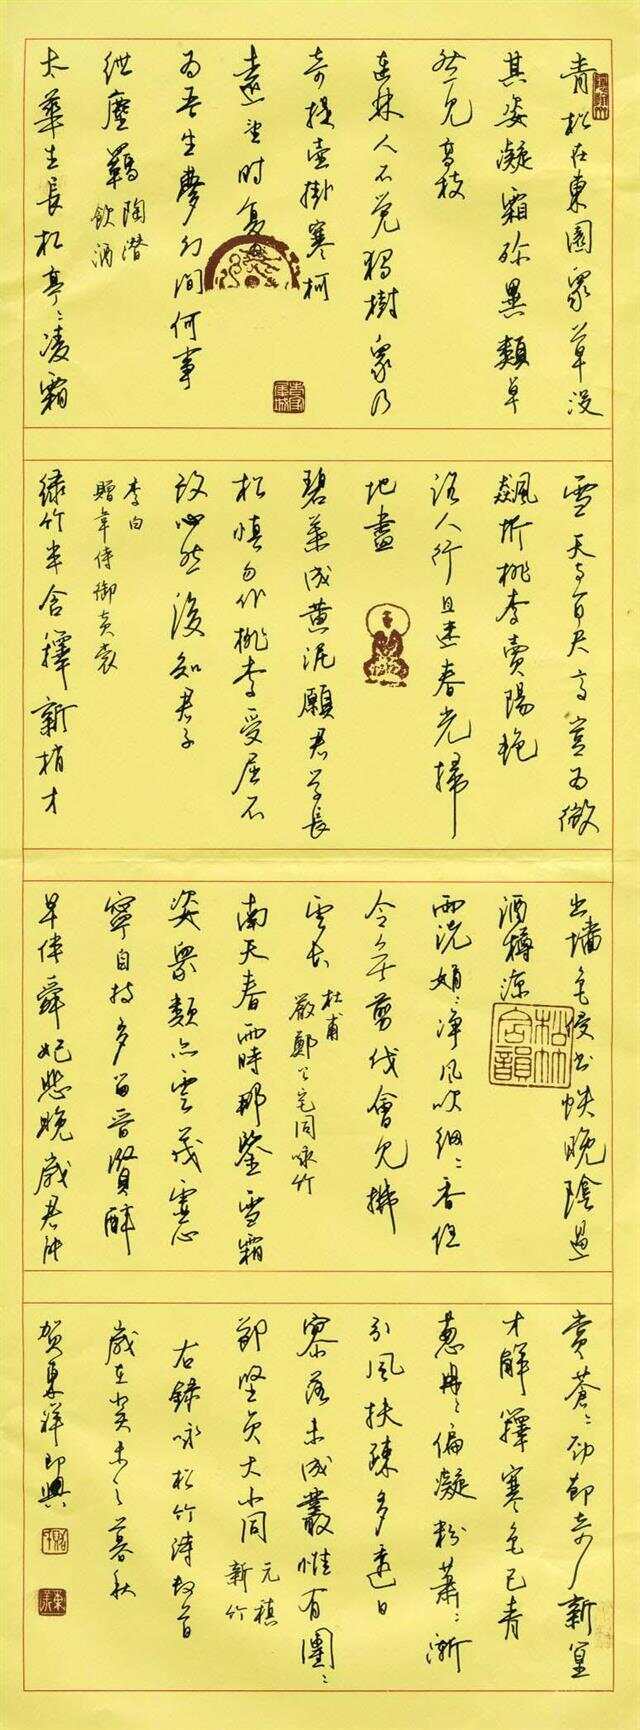 青松在東園眾草沒
其姿凝霜殄異類卓
然見高枝
連林人不覺獨樹眾乃
奇提壺掛寒柯
遠望時复
為吾生夢幻間何事
紲塵羈
陶潛
飲酒
太華生長松亭〻凌霜
雪天與百尺高豈為微
飆折桃李賣陽艷
路人行且迷春光掃
地盡
碧葉成黃泥願君學長
松慎勿作桃李受屈不
改心然後知君子
李白
贈韋侍御黃裳
綠竹半含籜新梢才
出墻色侵書帙晚陰過
酒樽涼
雨洗娟〻淨風吹細〻香但
令無剪伐會見拂
雲長
杜甫
嚴鄭公宅同咏竹
南天春雨時那鑒雪霜
姿眾類亦雲茂虛心
寧自持多留晉賢醉
早伴舜妃悲晚歲君能
賞蒼〻勁節奇 新篁
才解籜寒色已青
蔥冉〻偏凝粉蕭〻漸
引風扶疎多透日
寥落未成叢惟有團〻
節堅貞大小同
元稹
新竹
右錄咏松竹詩數首
歲在癸未之暮秋
賀東祥即興